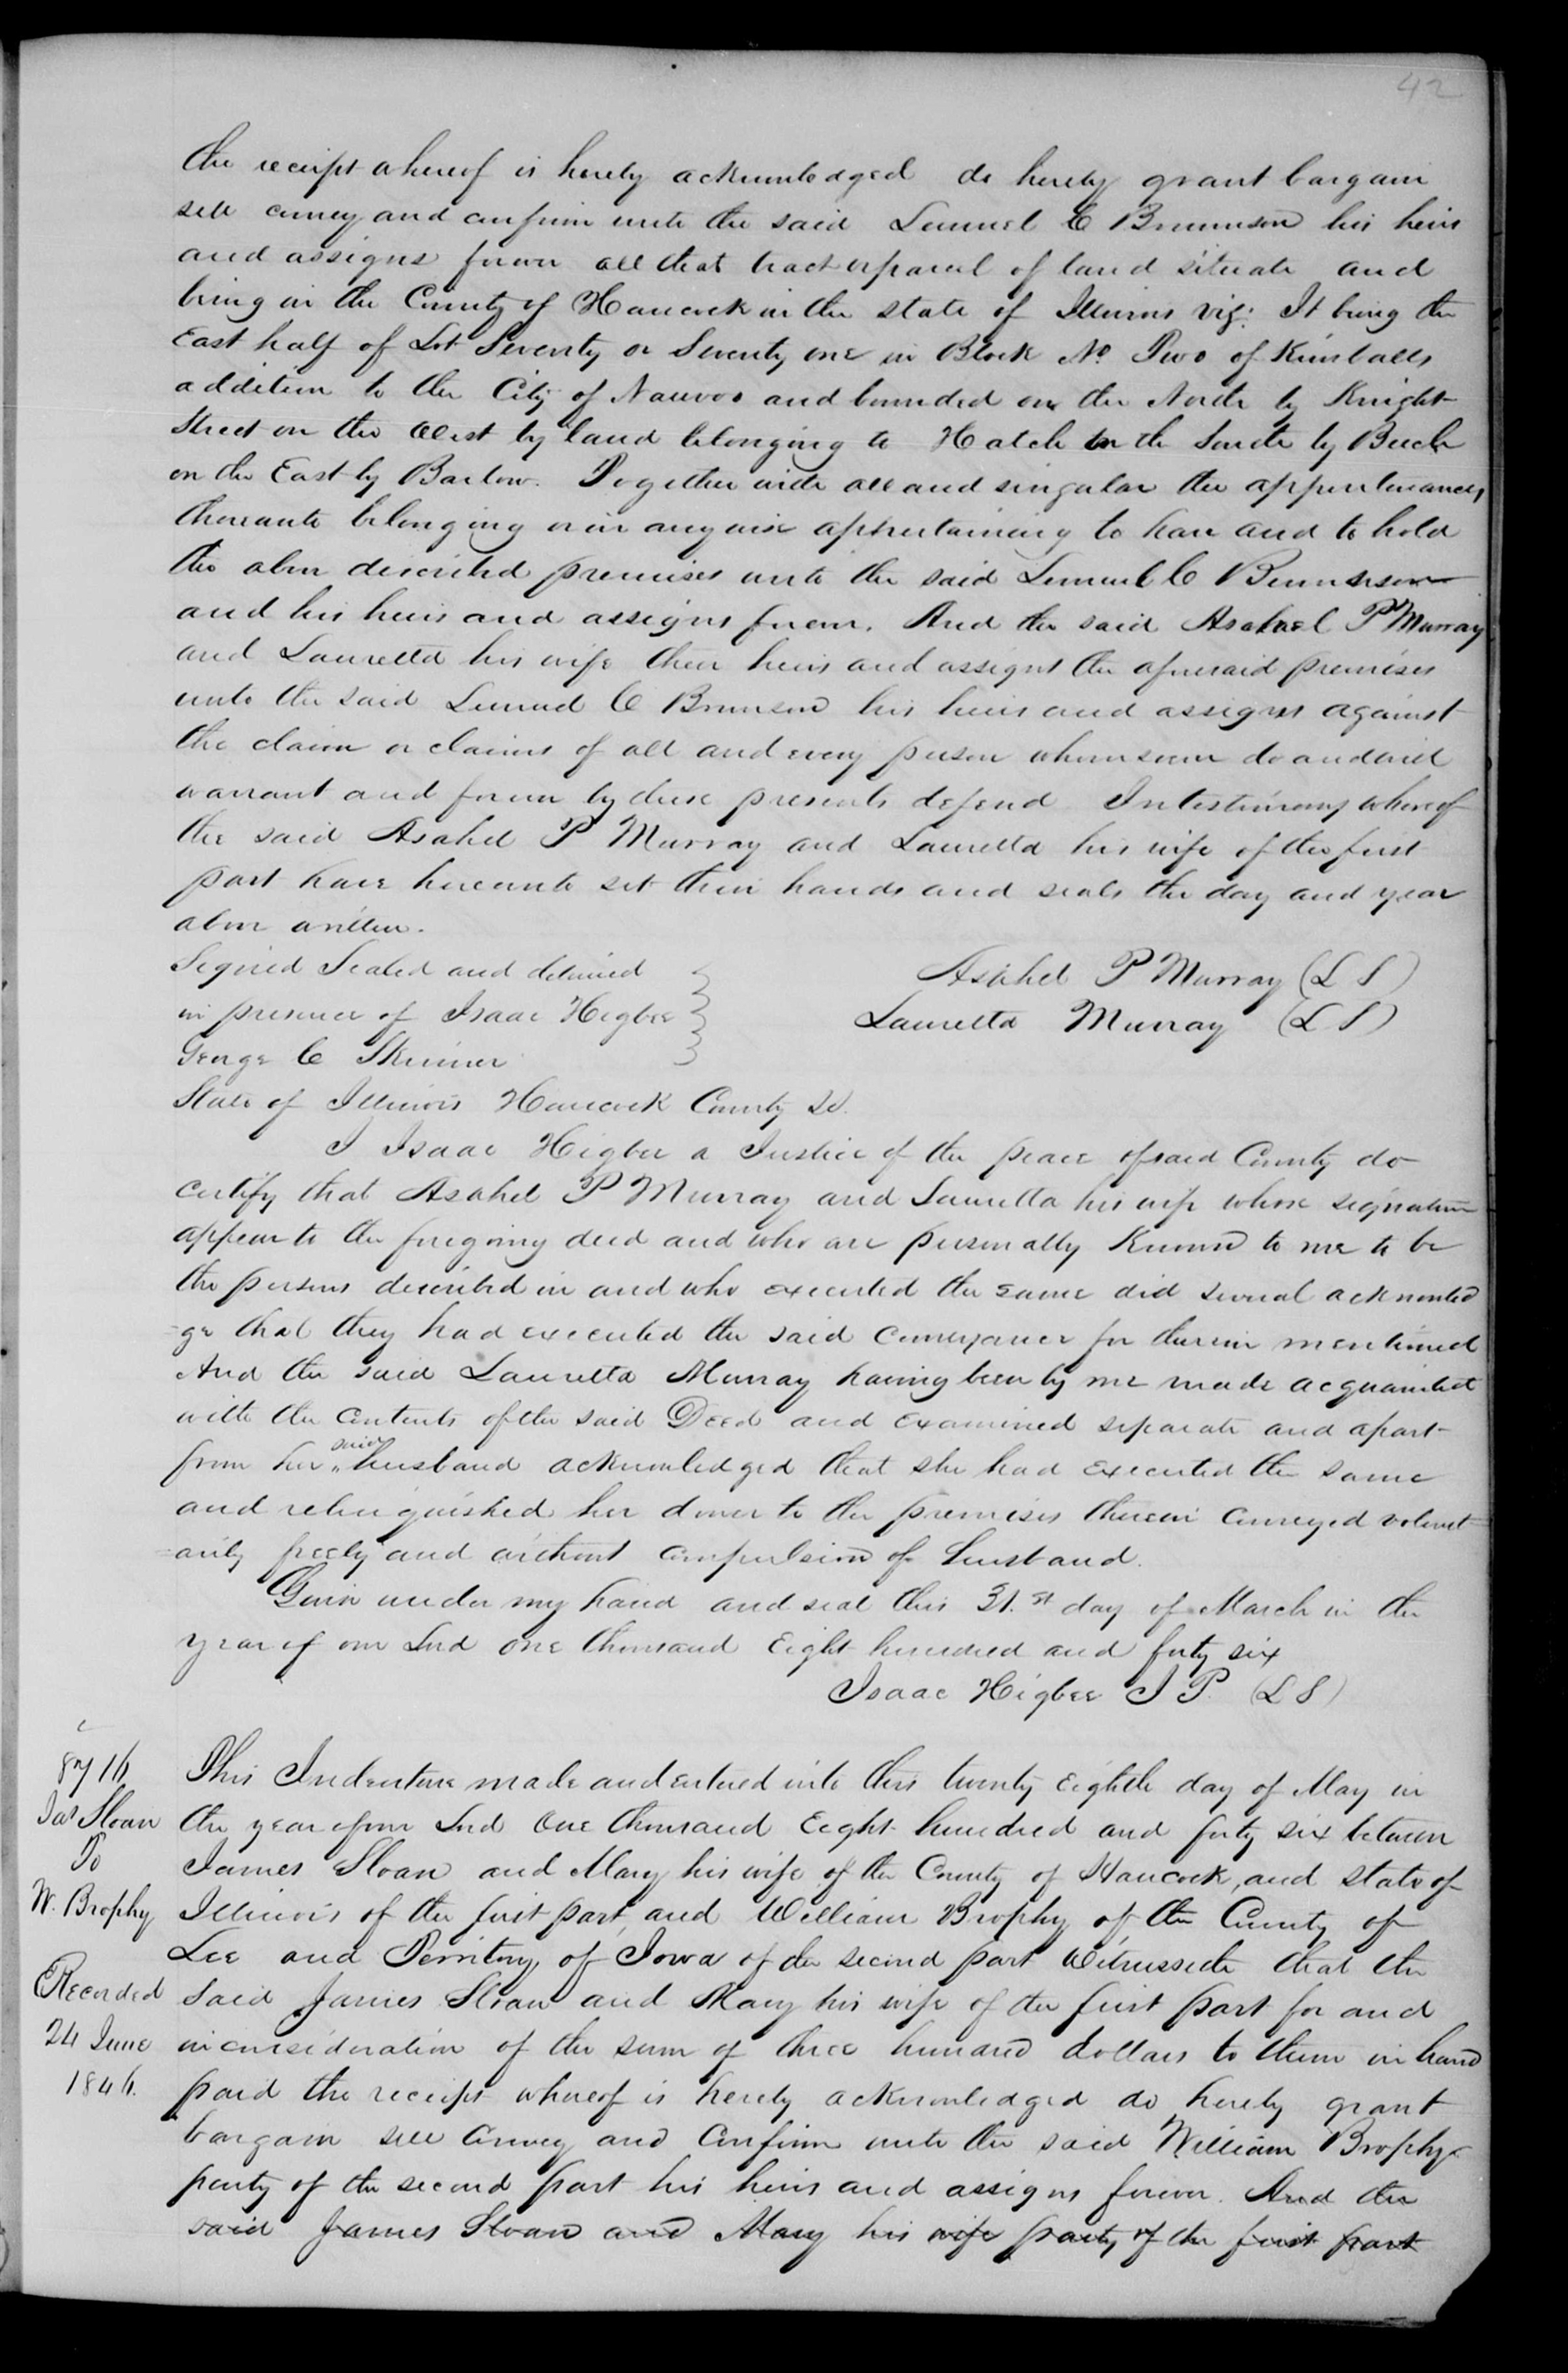 42
the receipt whereof is hereby acknowledged do hereby grant bargain
sell convey and confirm unto the said Lemuel C Brunnson his heirs
and assigns forever all that tract or parcel of land situate and
being in the County of Hancock in the state of Illinois viz: It being the
East half of Lot Seventy or Seventy one in Block No Two of Kimballs
addition to the City of Nauvoo and bounded on the North by Knight
Street on the West by land belonging to Hatch on the South by Buck
on the East by Barlow. Together with all and singular the appurtenances
thereunto belonging or in anywise appurtaining to have and to hold
the above described premises unto the said Lemuel C Brunnson
and his heirs and assigns forever. And the said Asahael P Murray
and Lauretta his wife their heirs and assigns the aforesaid premises
unto the said Lemuel C Brunson his heirs and assigns against
the claim or claims of all and every person whomsoever do and will
warrant and forever by these presents defend In testimony whereof
the said Asahel P Murray and Lauretta his wife of the first
part have hereunto set their hands and seals the day and year
above written.
Signed Sealed and delivered
in presence of Isaac Higbee
George C Skinner
Asahel P Murray (L S)
Lauretta Murray (L S)
State of Illinois Hancock County Sct.
I Isaac Higbee a Justice of the peace of said County do
certify that Asahel P Murray and Lauretta his wife whose signatures
appear to the foregoing deed and who are personally Known to me to be
the persons described in and who executed the same did several acknowled
-ge that they had executed the said conveyance for therein mentioned
And the said Lauretta Murray having been by me made acquainted
with the contents of the said Deed and examined separate and apart
from her said husband acknowledged that she had executed the same
and relinquished her dower to the premises therein conveyed volunt
-arily freely and without compulsion of husband.
Given under my hand and seal this 31.st day of March in the
year of our Lord one thousand Eight hundred and forty six
Isaac Higbee J P. (L S)
8716
Jas Sloan
To
W. Brophy
Recorded
24 June
1846.
This Indenture made and entered into this twenty eighth day of May in
the year of our Lord One thousand Eight hundred and forty six between
James Sloan and Mary his wife of the County of Hancock, and state of
Illinois of the first part, and William Brophy of the County of
Lee and Territory of Iowa of the second part Witnesseth that the
said James Sloan and Mary his wife of the first part for and
in consideration of the sum of three hundred dollars to them in hand
paid the receipt whereof is hereby acknowledged do hereby grant
bargain sell convey and Confirm unto the said William Brophy
party of the second part his heirs and assigns forever. And the
said James Sloan and Mary his wife party of the first part